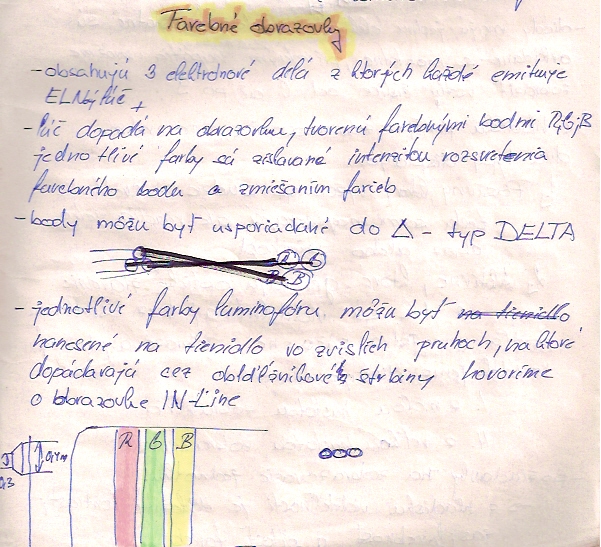 Farebné obrazovky
- obsahujú 3 elektrónové delá z ktorých každé emituje
ELNý lúč
- lúč dopadá na obrazovku, tvorenú farebnými bodmi R, G, B
jednotlivé farby sú získavané intenzitou rozsvetenia
farebného bodu a zmiešaním farieb
- body môžu byť usporiadané do Δ - typ DELTA
R G
B B
- jednotlivé farby luminofóru môžu byť na tienidlo
nanesené na tienidlo vo zvislích pruhoch, na ktoré
dopadavajú cez obdĺžnikové štrbiny hovoríme
o obrazovke IN-Line
R G B
0,3